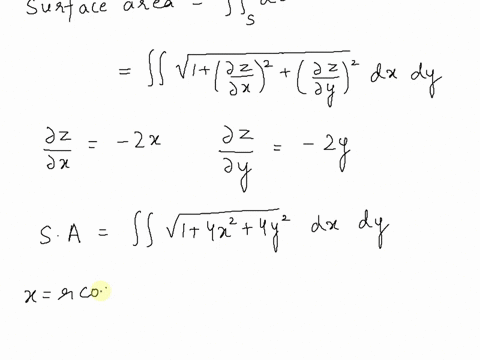 Surface area = ∬_S
= ∬ √(1+(∂z/∂x)²+(∂z/∂y)²) dx dy
∂z/∂x = -2x ∂z/∂y = -2y
S.A = ∬ √(1+4x²+4y²) dx dy
x = r co